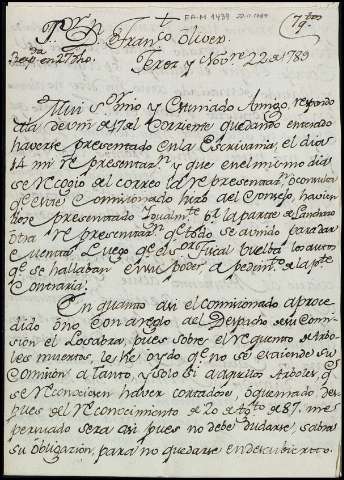 FA-M 1439 22-11-1789
Sr. Dn. Franco. Oliver.
Rda. en 27 dho.
Jerez y Novre 22 de 1789
Mui Sr. mio y Estimado Amigo, respondo
a la de vm. de 17 del Corriente quedando enterado
haverse presentado en la Escrivania, el dia
14 mi representazn. y que en el mismo dia
se recogio del correo la representazn. o consulta
qe. este Comisionado hizo al Consejo, havien
dose presentado Igualmte. pr. la parte de
otra representazn. qe. todo se a unido para dar
cuenta Luego qe. el Sor. Fiscal buelba los autos
qe. se hallaban en su poder a pedimto. de la pte.
Contraria.
En quanto a si el Comisionado a proce
dido o no, con areglo al Despacho de su Comi
sion el Lo sabra, pues sobre el requento de Arbo
les muertos, le he oydo qe. no se extiende su
Comision a tanto, y solo si aquellos Arboles, qe.
se reconociesen haver cortado, o quemado des
pues del Reconocimiento de 20 de de 87. me
persuado sera asi pues no debe dudarse, sabra
su obligazion, para no quedarse en descubierto.